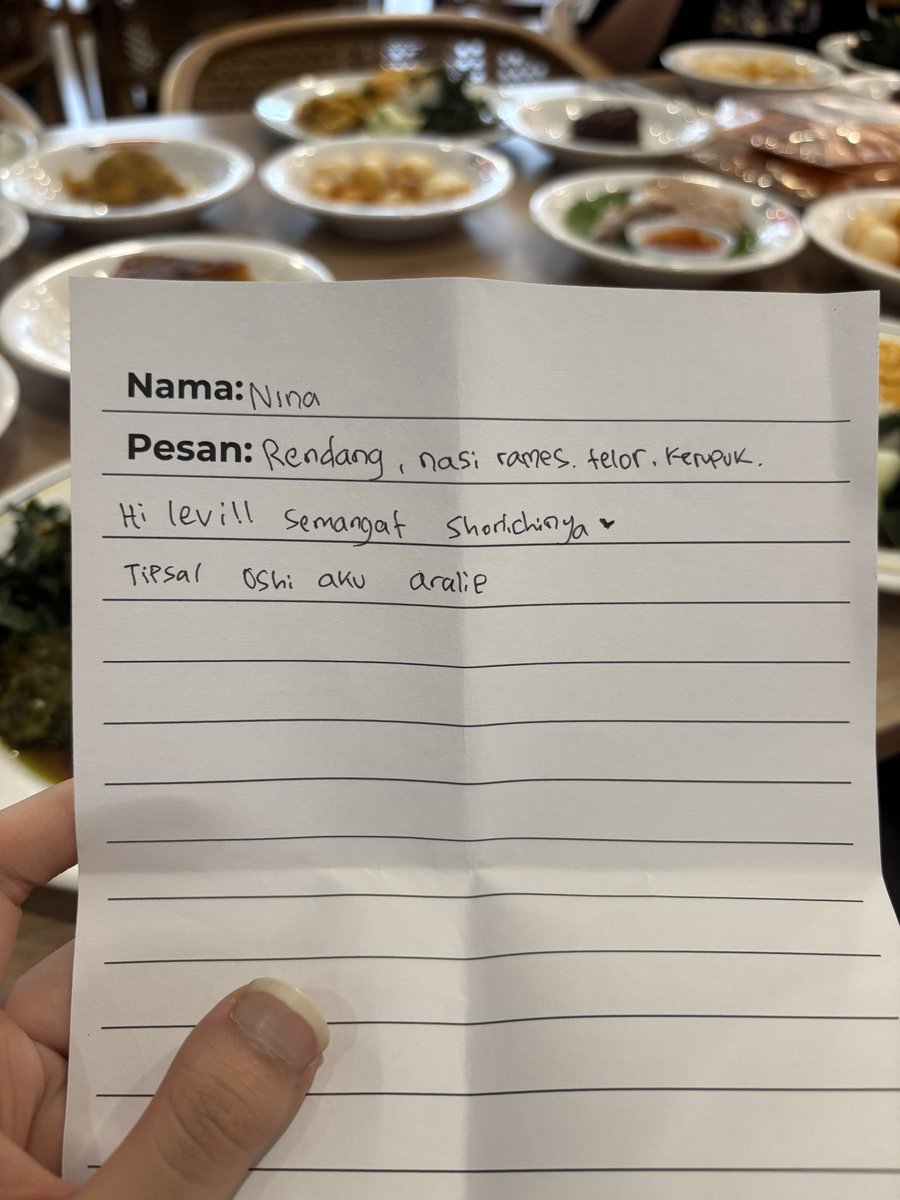 Nama: Nina
Pesan: Rendang, nasi rames. telor. kerupuk.
Hi levi!! semangat shonichinya ♥
Tipsal oshi aku aralie